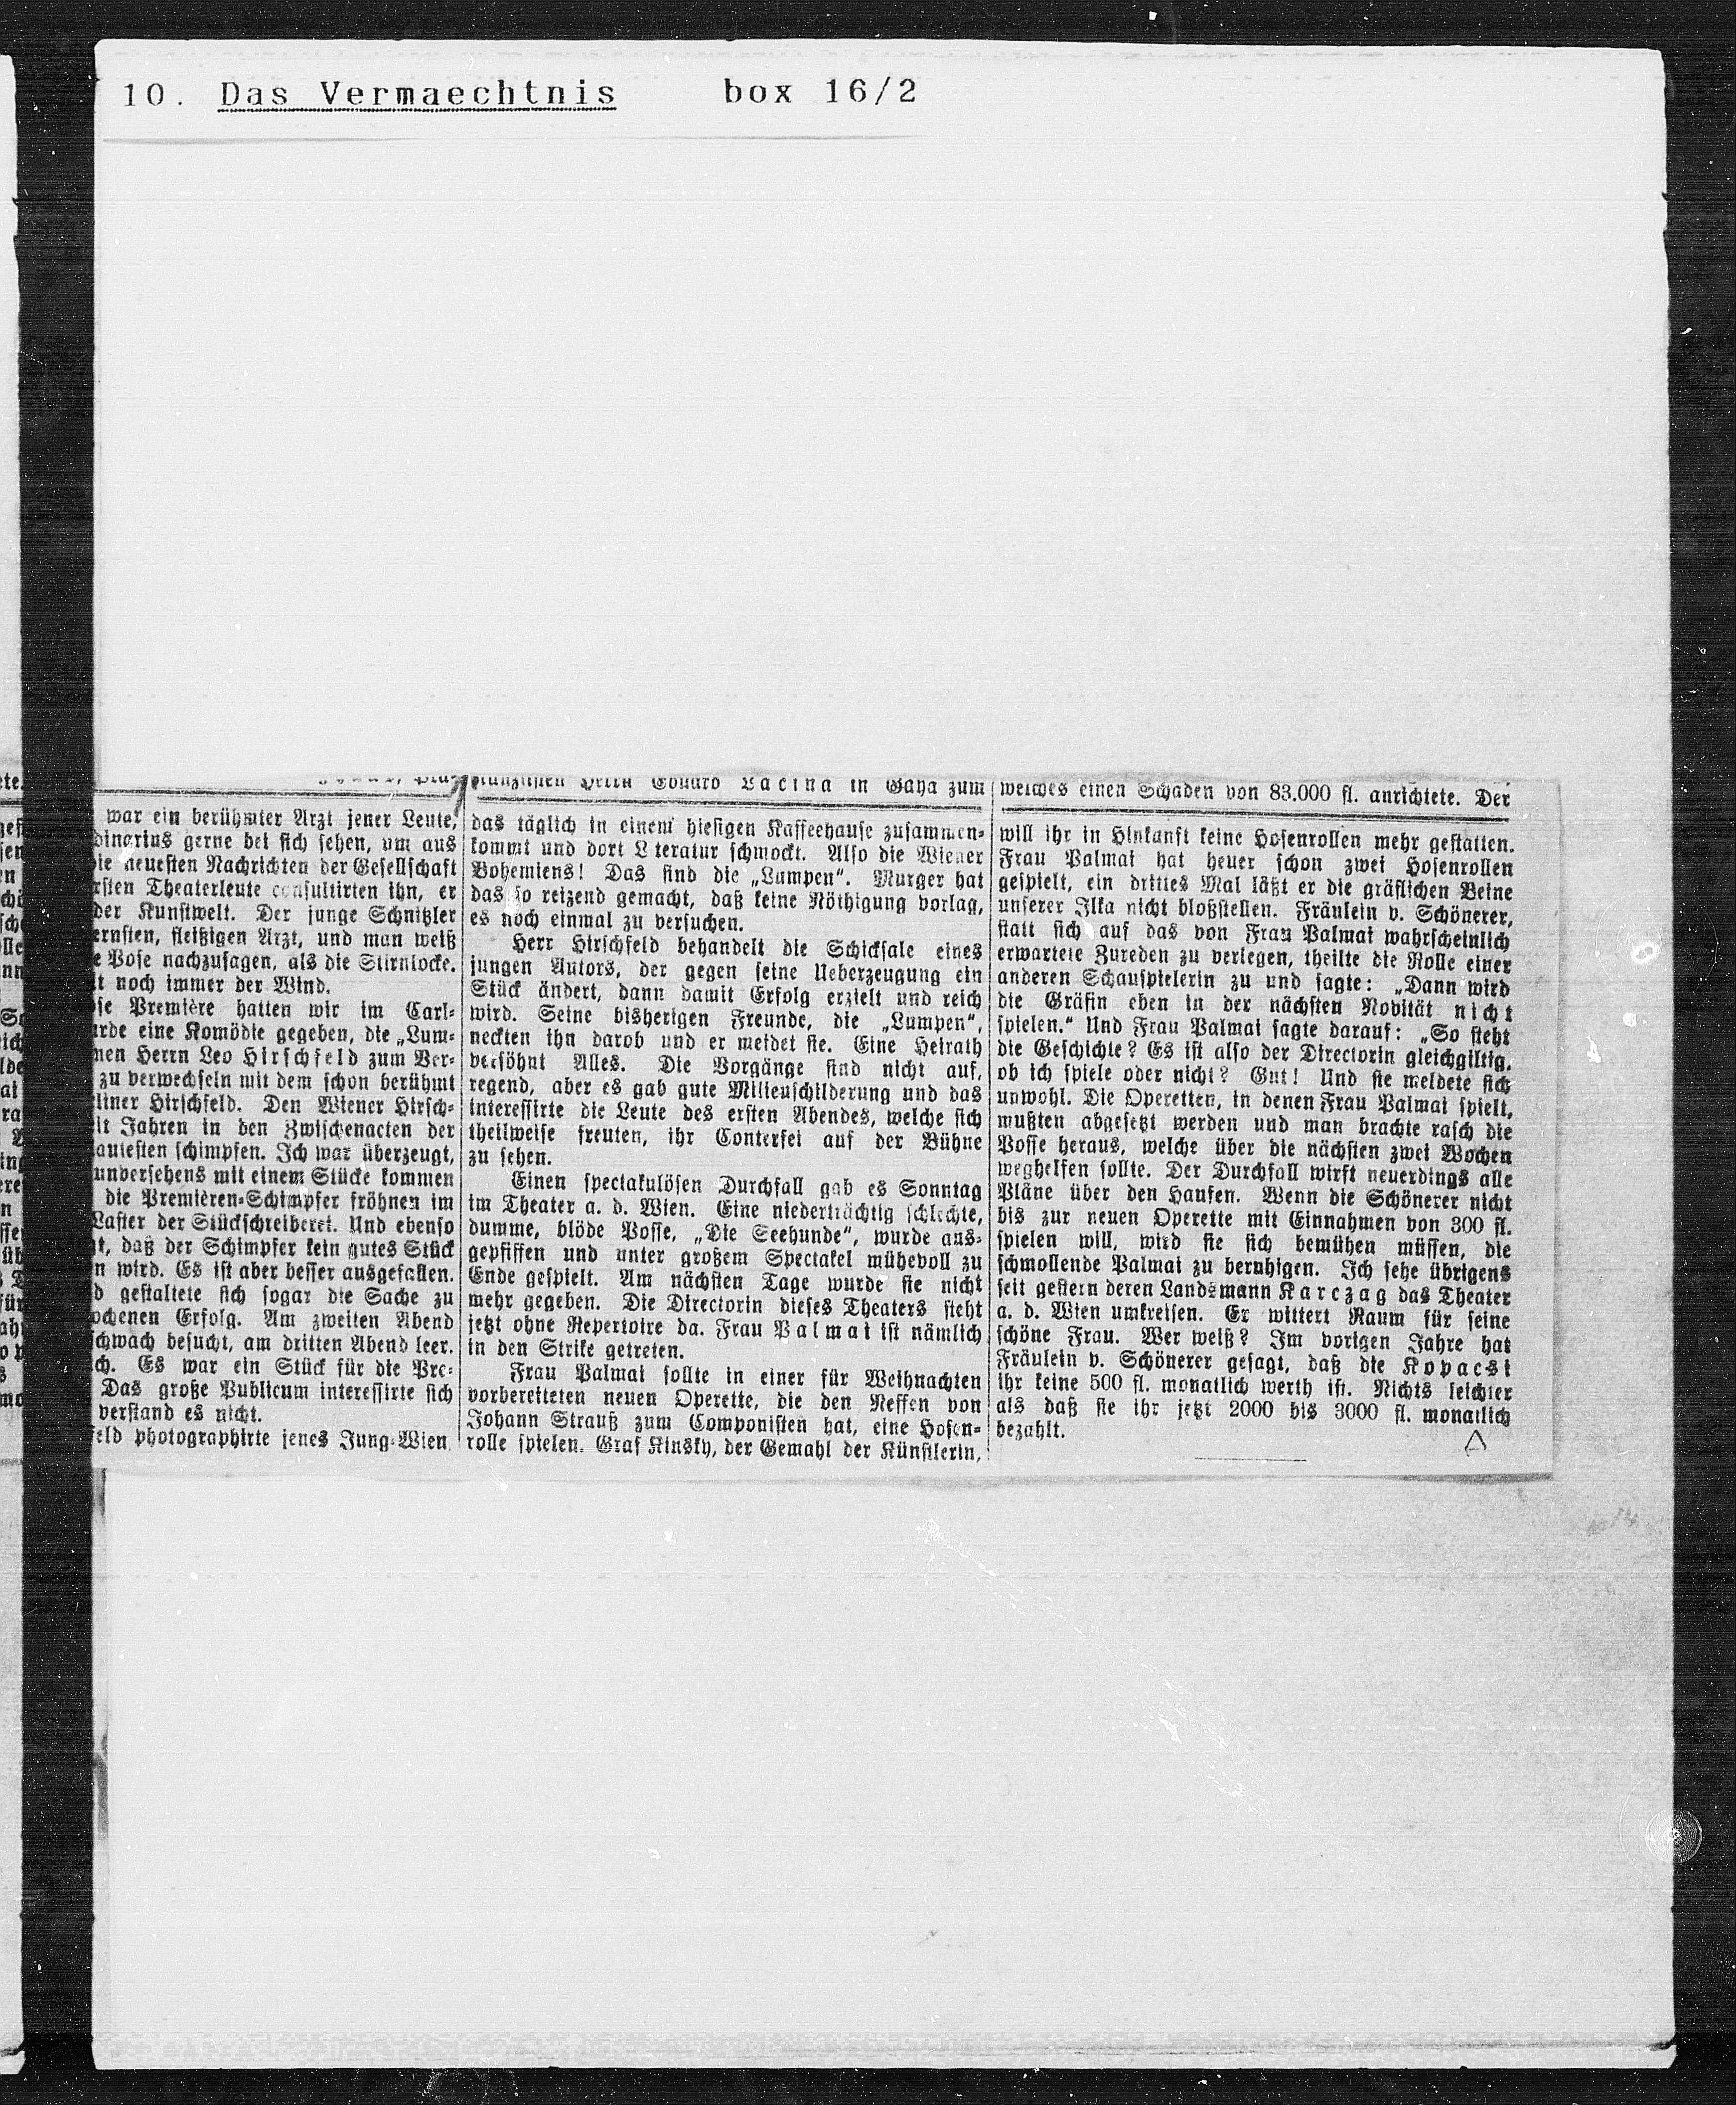 10. Das Vermaechtnis box 16/2
war ein berühmter Arzt jener Leute,
dinarius gerne bei sich sehen, um aus
die neuesten Nachrichten der Gesellschaft
rsten Theaterleute consultirten ihn, er
der Kunstwelt. Der junge Schnitzler
ernsten, fleißigen Arzt, und man weiß
e Pose nachzusagen, als die Stirnlocke.
t noch immer der Wind.
Première hatten wir im Carl-
rde eine Komödie gegeben, die „Lum-
nen Herrn Leo Hirschfeld zum Ver-
zu verwechseln mit dem schon berühmt
liner Hirschfeld. Den Wiener Hirsch-
it Jahren in den Zwischenacten der
autesten schimpfen. Ich war überzeugt,
unversehens mit einem Stücke kommen
die Premièren-Schimpfer fröhnen im
Laster der Stückschreiberei. Und ebenso
t, daß der Schimpfer kein gutes Stück
n wird. Es ist aber besser ausgefallen.
d gestaltete sich sogar die Sache zu
ochenen Erfolg. Am zweiten Abend
schwach besucht, am dritten Abend leer.
ch. Es war ein Stück für die Pre-
Das große Publicum interessirte sich
verstand es nicht.
feld photographirte jenes Jung-Wien,
Herrn Eduard Lacina in Gaya zum
das täglich in einem hiesigen Kaffeehause zusammen-
kommt und dort Literatur schmockt. Also die Wiener
Bohemiens! Das sind die „Lumpen“. Murger hat
das so reizend gemacht, daß keine Nöthigung vorlag,
es noch einmal zu versuchen.
Herr Hirschfeld behandelt die Schicksale eines
jungen Autors, der gegen seine Ueberzeugung ein
Stück ändert, dann damit Erfolg erzielt und reich
wird. Seine bisherigen Freunde, die „Lumpen“,
neckten ihn darob und er meidet sie. Eine Heirath
versöhnt Alles. Die Vorgänge sind nicht auf,
regend, aber es gab gute Milieuschilderung und das
interessirte die Leute des ersten Abendes, welche sich
theilweise freuten, ihr Conterfei auf der Bühne
zu sehen.
Einen spectakulösen Durchfall gab es Sonntag
im Theater a. d. Wien. Eine niederträchtig schlechte,
dumme, blöde Posse, „Die Seehunde“, wurde aus-
gepfiffen und unter großem Spectakel mühevoll zu
Ende gespielt. Am nächsten Tage wurde sie nicht
mehr gegeben. Die Directorin dieses Theaters steht
jetzt ohne Repertoire da. Frau Palmai ist nämlich
in den Strike getreten.
Frau Palmai sollte in einer für Weihnachten
vorbereiteten neuen Operette, die den Neffen von
Johann Strauß zum Componisten hat, eine Hosen-
rolle spielen. Graf Kinsky, der Gemahl der Künstlerin,
welches einen Schaden von 83.000 fl. anrichtete. Der
will ihr in Hinkunft keine Hosenrollen mehr gestatten.
Frau Palmai hat heuer schon zwei Hosenrollen
gespielt, ein drittes Mal läßt er die gräflichen Beine
unserer Ilka nicht bloßstellen. Fräulein v. Schönerer,
statt sich auf das von Frau Palmai wahrscheinlich
erwartete Zureden zu verlegen, theilte die Rolle einer
anderen Schauspielerin zu und sagte: „Dann wird
die Gräfin eben in der nächsten Novität nicht
spielen.“ Und Frau Palmai sagte darauf: „So steht
die Geschichte? Es ist also der Directorin gleichgiltig,
ob ich spiele oder nicht? Gut! Und sie meldete sich
unwohl. Die Operetten, in denen Frau Palmai spielt,
mußten abgesetzt werden und man brachte rasch die
Posse heraus, welche über die nächsten zwei Wochen
weghelfen sollte. Der Durchfall wirft neuerdings alle
Pläne über den Haufen. Wenn die Schönerer nicht
bis zur neuen Operette mit Einnahmen von 300 fl.
spielen will, wird sie sich bemühen müssen, die
schmollende Palmai zu beruhigen. Ich sehe übrigens
seit gestern deren Landsmann Karczag das Theater
a. d. Wien umkreisen. Er wittert Raum für seine
schöne Frau. Wer weiß? Im vorigen Jahre hat
Fräulein v. Schönerer gesagt, daß die Kopacsi
ihr keine 500 fl. monatlich werth ist. Nichts leichter
als daß sie ihr jetzt 2000 bis 3000 fl. monatlich
bezahlt.